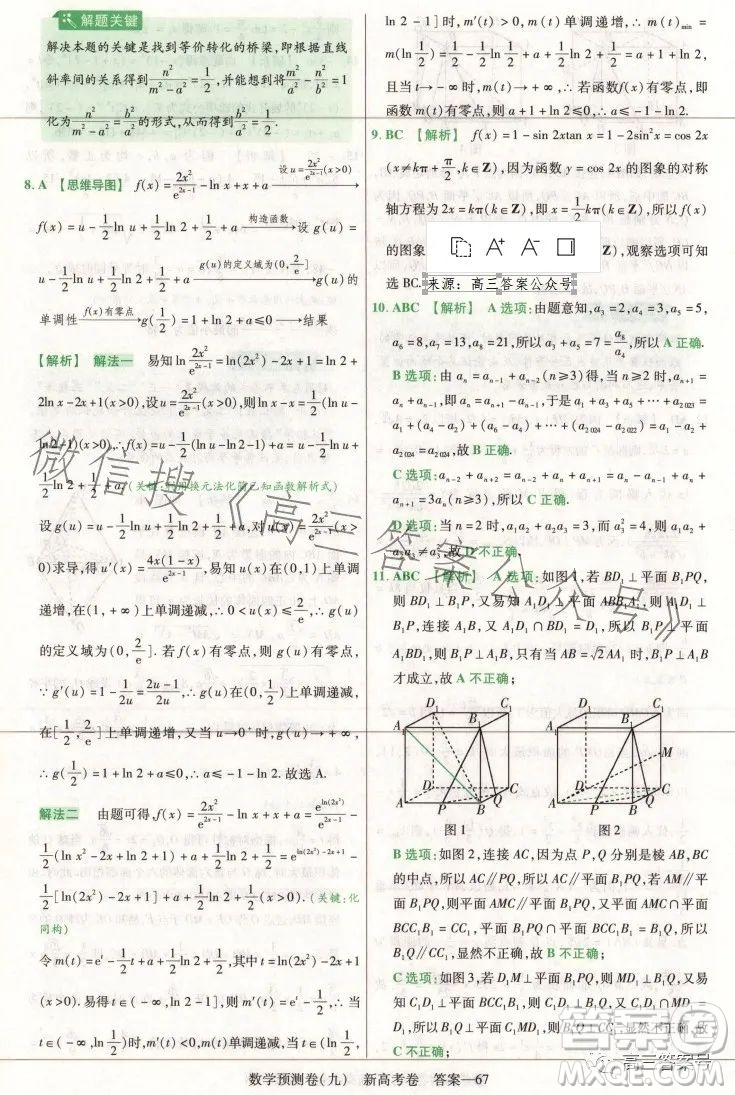 解题关键
解决本题的关键是找到等价转化的桥梁,即根据直线
斜率间的关系得到n²/(m²-a²)=1/2,并能想到将m²/a²-n²/b²=1
化为n²/(m²-a²)=b²/a²的形式,从而得到b²/a²=1/2.
8. A 【思维导图】 f(x)=2x²/e^(2x-1)-ln x+x+a 设u=2x²/e^(2x-1)(x>0)
f(x)=u-1/2 ln u+1/2 ln 2+1/2+a 构造函数 设 g(u)=
u-1/2 ln u+1/2 ln 2+1/2+a g(u)的定义域为(0,2/e] g(u)的
单调性 f(x)有零点 g(1/2)=1+ln 2+a≤0→结果
【解析】 解法一 易知ln 2x²/e^(2x-1)=ln(2x²)-2x+1=ln 2+
2ln x-2x+1(x>0),设u=2x²/e^(2x-1)(x>0),则ln x-x=1/2(ln u-
ln 2-1)(x>0),∴f(x)=u-1/2(ln u-ln 2-1)+a=u-1/2 ln u+
1/2 ln 2+1/2+a.(关键:利用换元法化简已知函数解析式)
设g(u)=u-1/2 ln u+1/2 ln 2+1/2+a,对u(x)=2x²/e^(2x-1)(x>
0)求导,得u′(x)=4x(1-x)/e^(2x-1),易知u(x)在(0,1)上单调
递增,在(1,+∞)上单调递减,∴0<u(x)≤2/e,∴g(u)
的定义域为(0,2/e].若f(x)有零点,则g(u)有零点.
∵g′(u)=1-1/2u=(2u-1)/2u,∴g(u)在(0,1/2)上单调递减,
在[1/2,2/e]上单调递增,又当u→0⁺时,g(u)→+∞,
∴g(1/2)=1+ln 2+a≤0,∴a≤-1-ln 2.故选A.
解法二 由题可得,f(x)=2x²/e^(2x-1)+a=e^ln(2x²)/e^(2x-1)
-1/2(ln x²-2x+ln 2+1)+a+1/2 ln 2+1/2=e^(ln(2x²)-2x+1)-
1/2[ln(2x²)-2x+1]+a+1/2 ln 2+1/2.(关键:化
同构)
令m(t)=e^t-1/2 t+a+1/2 ln 2+1/2,其中t=ln(2x²)-2x+1
(x>0).易得t∈(-∞,ln 2-1],则m′(t)=e^t-1/2,∴当
t∈(-∞,ln 1/2)时,m′(t)<0,m(t)单调递减,当t∈(ln 1/2,
ln 2-1]时,m′(t)>0,m(t)单调递增,∴m(t)min=
m(ln 1/2)=1/2-1/2 ln 1/2+a+1/2 ln 2+1/2=a+1+ln 2,
且当t→-∞时,m(t)→+∞.若函数f(x)有零点,即
函数m(t)有零点,则a+1+ln 2≤0,∴a≤-1-ln 2.
9. BC 【解析】 f(x)=1-sin 2xtan x=1-2sin²x=cos 2x
(x≠kπ+π/2,k∈Z),因为函数y=cos 2x的图象的对称
轴方程为2x=kπ(k∈Z),即x=1/2kπ(k∈Z),所以f(x)
的图象
(k∈Z),观察选项可知
选BC.
来源：高三答案公众号
10. ABC 【解析】 A选项:由题意知,a₃=2,a₄=3,a₅=5,
a₆=8,a₇=13,a₈=21,所以a₃=7=a₈/a₄,所以A正确.
B选项:由aₙ=aₙ₋₁+aₙ₋₂(n≥3)得,当n≥2时,aₙ₊₁=
aₙ+aₙ₋₁,即aₙ=aₙ₊₁-aₙ₋₁,于是a₁+a₃+…+a₂₀₂₃=
a₁+(a₄-a₂)+(a₆-a₄)+…+(a₂₀₂₄-a₂₀₂₂)=a₁-a₂+
a₂₀₂₄=a₂₀₂₄,故B正确.
C选项:aₙ₋₂+aₙ₊₂=aₙ-aₙ₋₁+aₙ₊₁+aₙ=aₙ+aₙ+aₙ₋₁-
aₙ₋₁+aₙ=3aₙ(n≥3),所以C正确.
D选项:当n=2时,a₁a₂+a₂a₃=3,而a₃²=4,则a₁a₂+
a₂a₃≠a₃²,故D不正确.
11. ABC 【解析】 A选项:如图1,若BD₁⊥平面B₁PQ,
则BD₁⊥B₁P,又易知A₁D₁⊥平面ABB₁A₁,则A₁D₁⊥
B₁P,连接A₁B,又A₁D₁∩BD₁=D₁,所以B₁P⊥平面
A₁BD₁,则A₁B⊥B₁P,所以只有当AB=√2AA₁时,BD₁⊥平面B₁PQ
才成立,故A不正确;
D₁ C₁ A₁ B₁ D C A P B Q
图1
D₁ C₁ A₁ B₁ M D C A P B Q
图2
B选项:如图2,连接AC,因为点P,Q分别是棱AB,BC
的中点,所以AC∥PQ,所以AC∥平面B₁PQ.若AM∥平
面B₁PQ,则平面AMC∥平面B₁PQ,又平面AMC∩平面
BCC₁B₁=CC₁,平面B₁PQ∩平面BCC₁B₁=B₁Q,所以
B₁Q∥CC₁,显然不正确,故B不正确;
C选项:如图3,若D₁M⊥平面B₁PQ,则D₁M⊥B₁Q,又易
知C₁D₁⊥平面BCC₁B₁,则C₁D₁⊥B₁Q,又C₁D₁∩MD₁=
D₁,所以B₁Q⊥平面C₁MD₁,则B₁Q⊥CC₁,显然不正确,故
C不正确;
微信搜《高三答案公众号》
高三答案号
数学预测卷(九) 新高考卷 答案—67